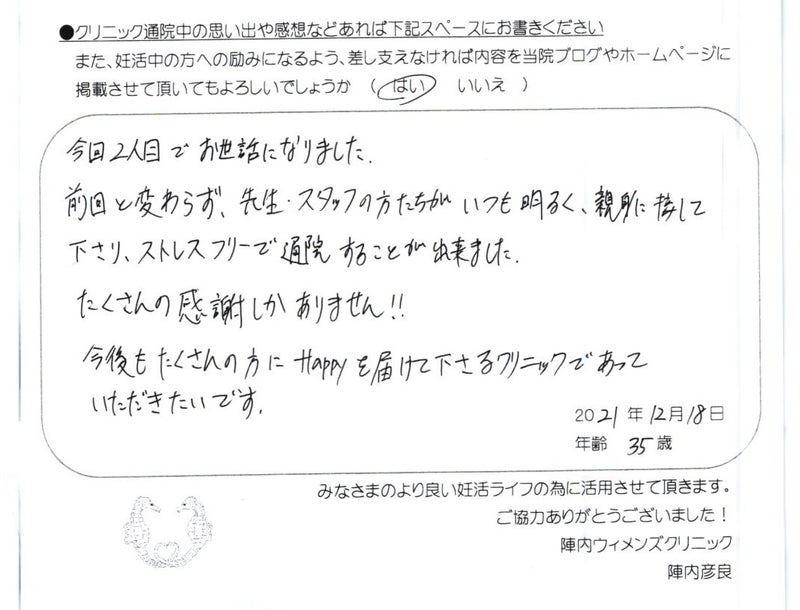 ●クリニック通院中の思い出や感想などあれば下記スペースにお書きください
また、妊活中の方への励みになるよう、差し支えなければ内容を当院ブログやホームページに
掲載させて頂いてもよろしいでしょうか ( はい いいえ )
今回2人目でお世話になりました.
前回と変わらず、先生・スタッフの方たちがいつも明るく、親身に接して
下さり、ストレスフリーで通院することが出来ました.
たくさんの感謝しかありません!!
今後もたくさんの方にHappyを届けて下さるクリニックであって
いただきたいです.
2021年12月18日
年齢 35歳
みなさまのより良い妊活ライフの為に活用させて頂きます。
ご協力ありがとうございました！
陣内ウィメンズクリニック
陣内彦良